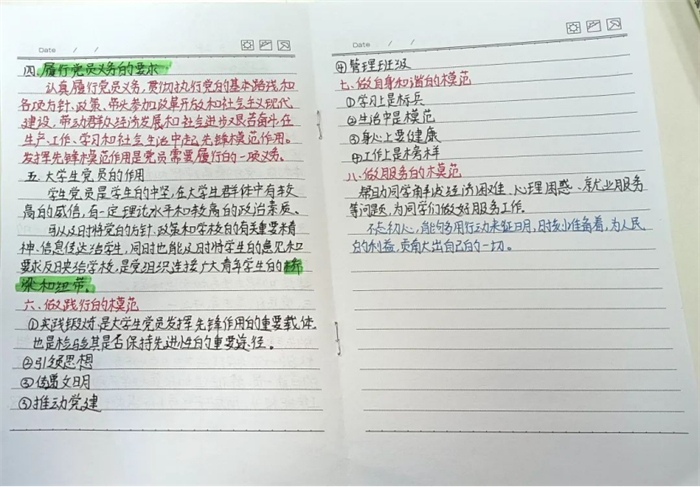 Date / /
四、履行党员义务的要求
认真履行党员义务,贯彻执行党的基本路线和
各项方针、政策,带头参加改革开放和社会主义现代
建设,带动群众经济发展和社会进步艰苦奋斗,在
生产、工作、学习和社会生活中起先锋模范作用。
发挥先锋模范作用是党员需要履行的一项义务。
五、大学生党员的作用
学生党员是学生的中坚,在大学生群体中有较
高的威信,有一定理论水平和较高的政治素质、
可以及时将党的方针、政策和学校的有关重要精
神、信息传达给学生,同时也能及时将学生的意见和
要求反映给学校,是党组织连接广大青年学生的桥
梁和纽带。
六、做践行的模范
①实践锻炼,是大学生党员发挥先锋作用的重要载体,
也是检验其是否保持先进性的重要途径。
②引领思想
③传播文明
⑤推动党建
Date / /
④管理班级
七、做自身和谐的模范
①学习上是标兵
②生活中是模范
③身心上要健康
④工作上是榜样
八、做服务的模范
帮助同学解决经济困难、心理困惑、就业服务
等问题,为同学们做好服务工作。
不忘初心,能够用行动来证明,时刻准备着,为人民
的利益,贡献出自己的一切。